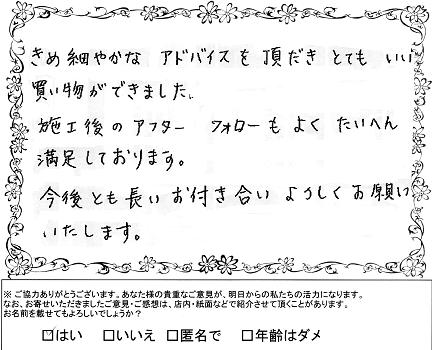 きめ細やかな アドバイスを頂だき とても いい
買い物ができました。
施工後の アフター フォローも よく たいへん
満足しております。
今後とも長い お付き合い よろしくお願い
いたします。
※ ご協力ありがとうございます。あなた様の貴重なご意見が、明日からの私たちの活力になります。
なお、お寄せいただきましたご意見・ご感想は、店内・紙面などで紹介させて頂くことがあります。
お名前を載せてもよろしいでしょうか？
☑はい □いいえ □匿名で □年齢はダメ